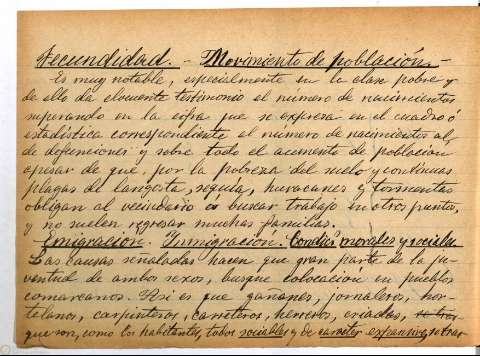 Fecundidad. - Movimiento de población. -
Es muy notable, especialmente en la clase pobre y
de ello da elocuente testimonio el número de nacimientos
superando en la cifra que se expresa en el cuadro ó
estadística correspondiente el número de nacimientos al
de defunciones y sobre todo el aumento de población
apesar de que, por la pobreza del suelo y continuas
plagas de langosta, sequía, huracanes y tormentas
obligan al vecindario a buscar trabajo en otros puntos,
y no suelen regresar muchas familias.
Emigración. Inmigración. Condic.s morales y sociales
Las causas señaladas hacen que gran parte de la ju-
ventud de ambos sexos, busque colocación en pueblos
comarcanos. Así es que gañanes, jornaleros, hor-
telanos, carpinteros, carreteros, herreros, criadas,
que son, como los habitantes, todos sociables y de carácter expansivo,